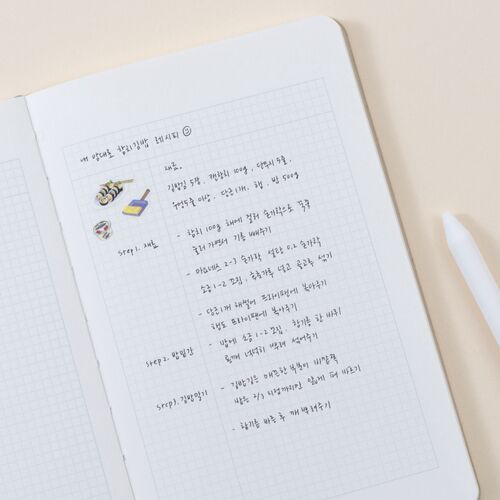 내 맘대로 참치김밥 레시피
재료.
김밥김 5장, 캔참치 100g, 단무지 5줄,
우엉 5줄 이상, 당근 1개, 햄, 밥 500g
step1. 재료
- 참치 100g 체에 걸러 숟가락으로 꾹꾹
눌러가면서 기름 빼주기
- 마요네즈 2-3 숟가락 설탕 0.2 숟가락
소금 1-2 꼬집, 후춧가루 넣고 골고루 섞기
- 당근 1개 채썰어 프라이팬에 볶아주기
햄도 프라이팬에 볶아주기
step2. 밥밑간
- 밥에 소금 1-2 꼬집, 참기름 한 바퀴
통깨 넉넉히 뿌려 섞어주기
step3. 김밥말기
- 김밥김은 매끈한 부분이 바깥쪽
밥은 2/3 지점까지만 얇게 펴 바르기
- 참기름 바른 후 깨 뿌려주기